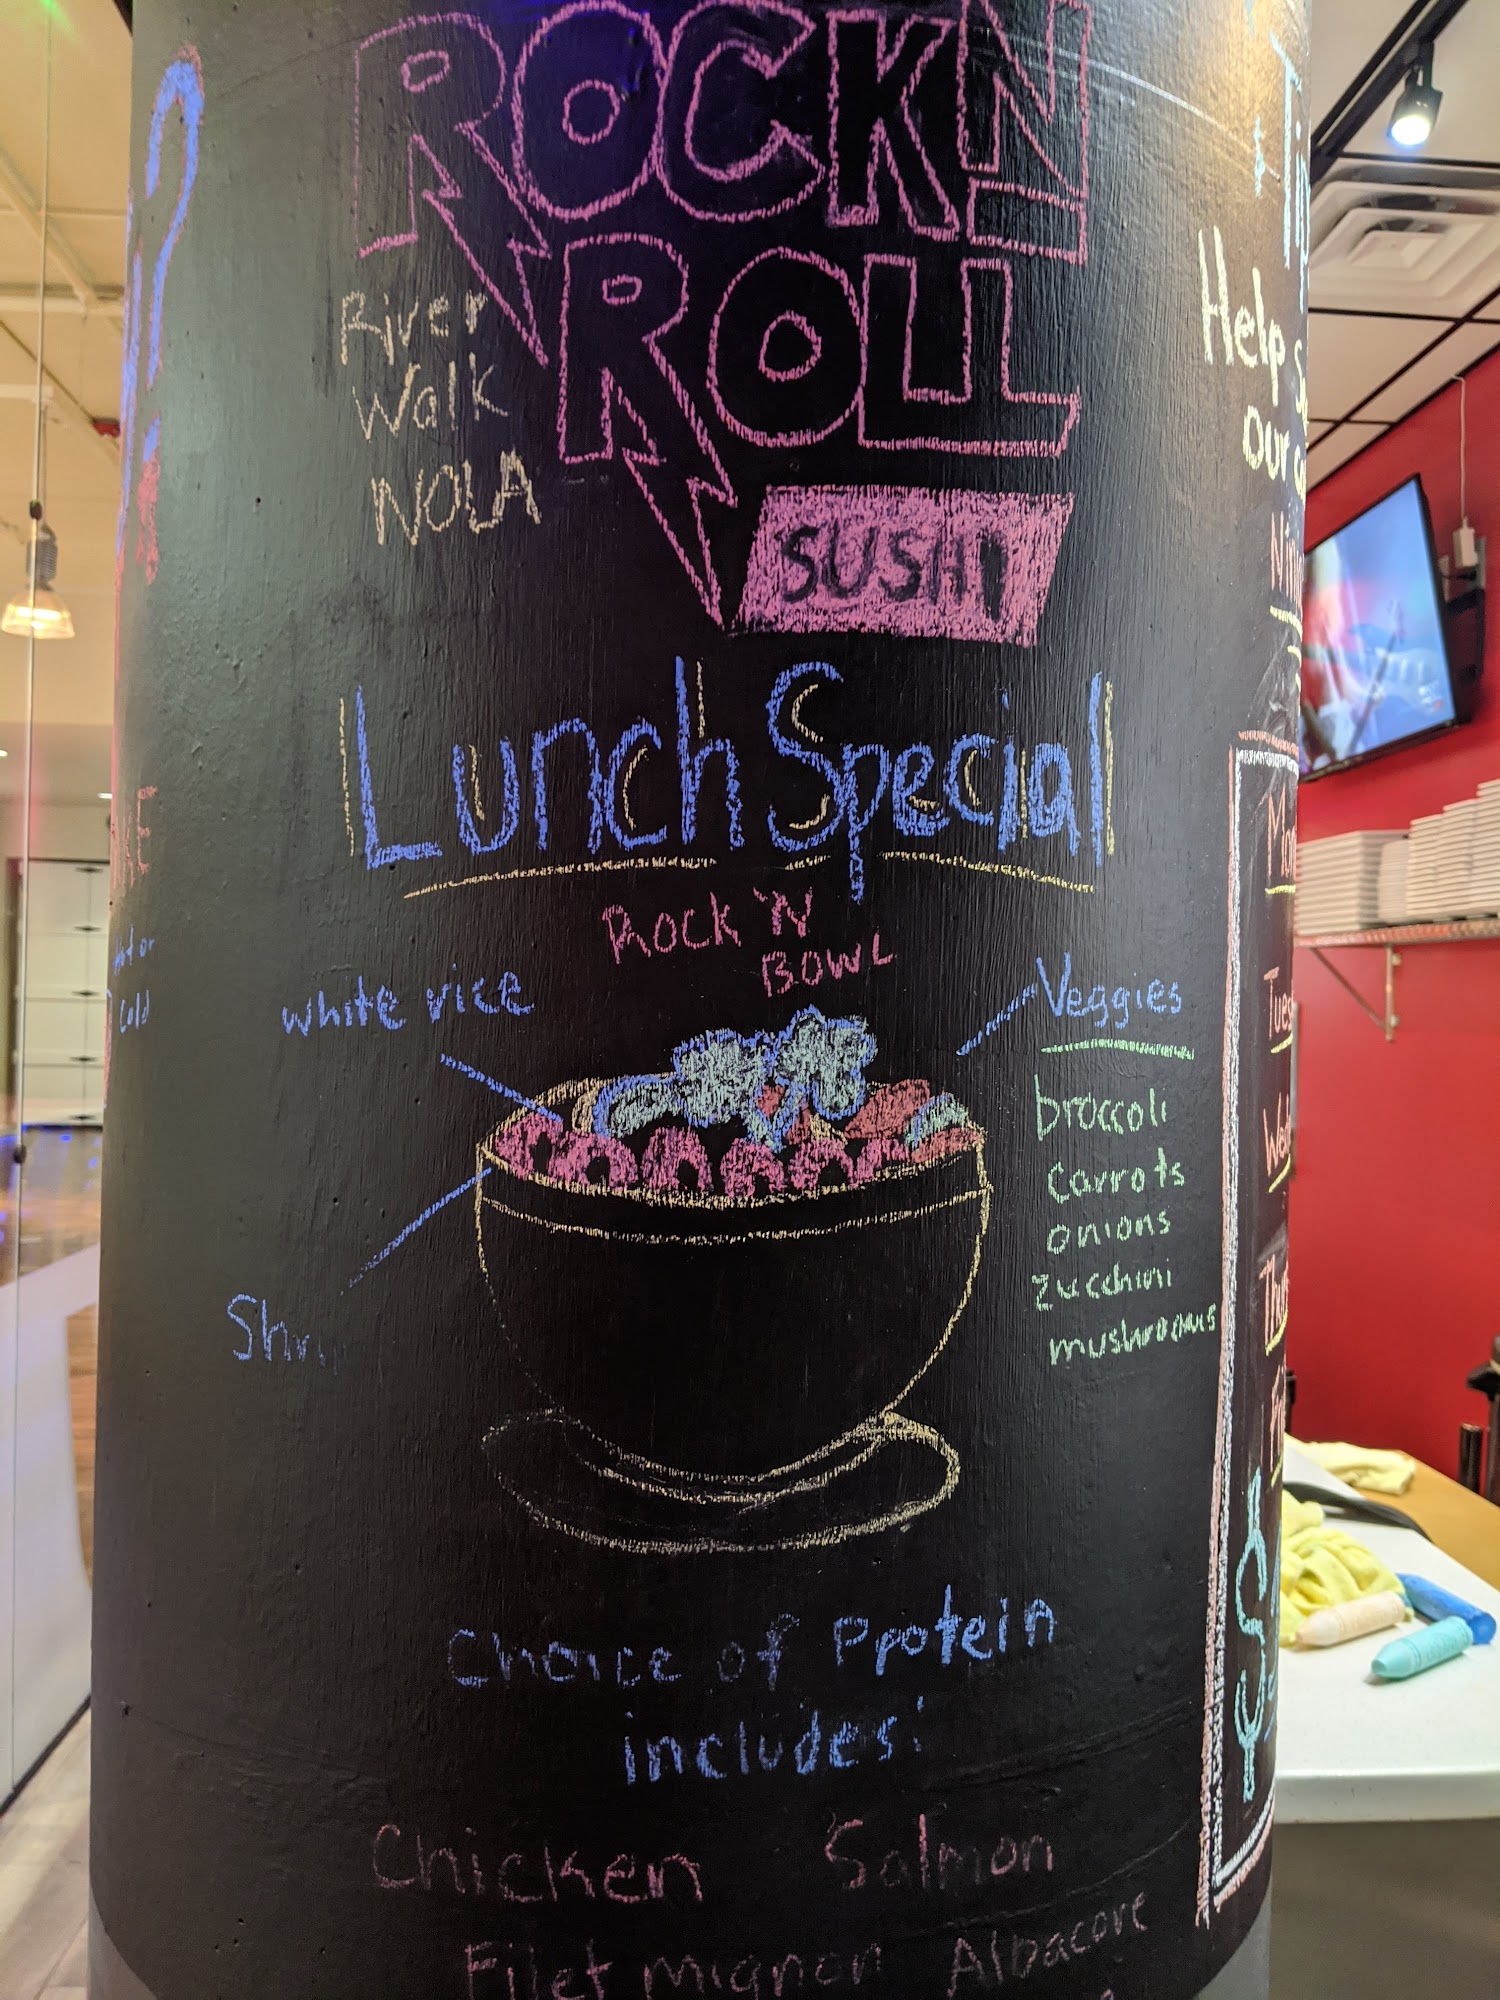 ROCKN
ROLL
SUSHI
River
Walk
NOLA
Lunch Special
ROCK 'N
BOWL
white rice
Veggies
broccoli
carrots
onions
zucchini
mushrooms
Choice of Protein
includes:
Chicken Salmon
Filet Mignon Albacore
Hot or
Cold
Help
our